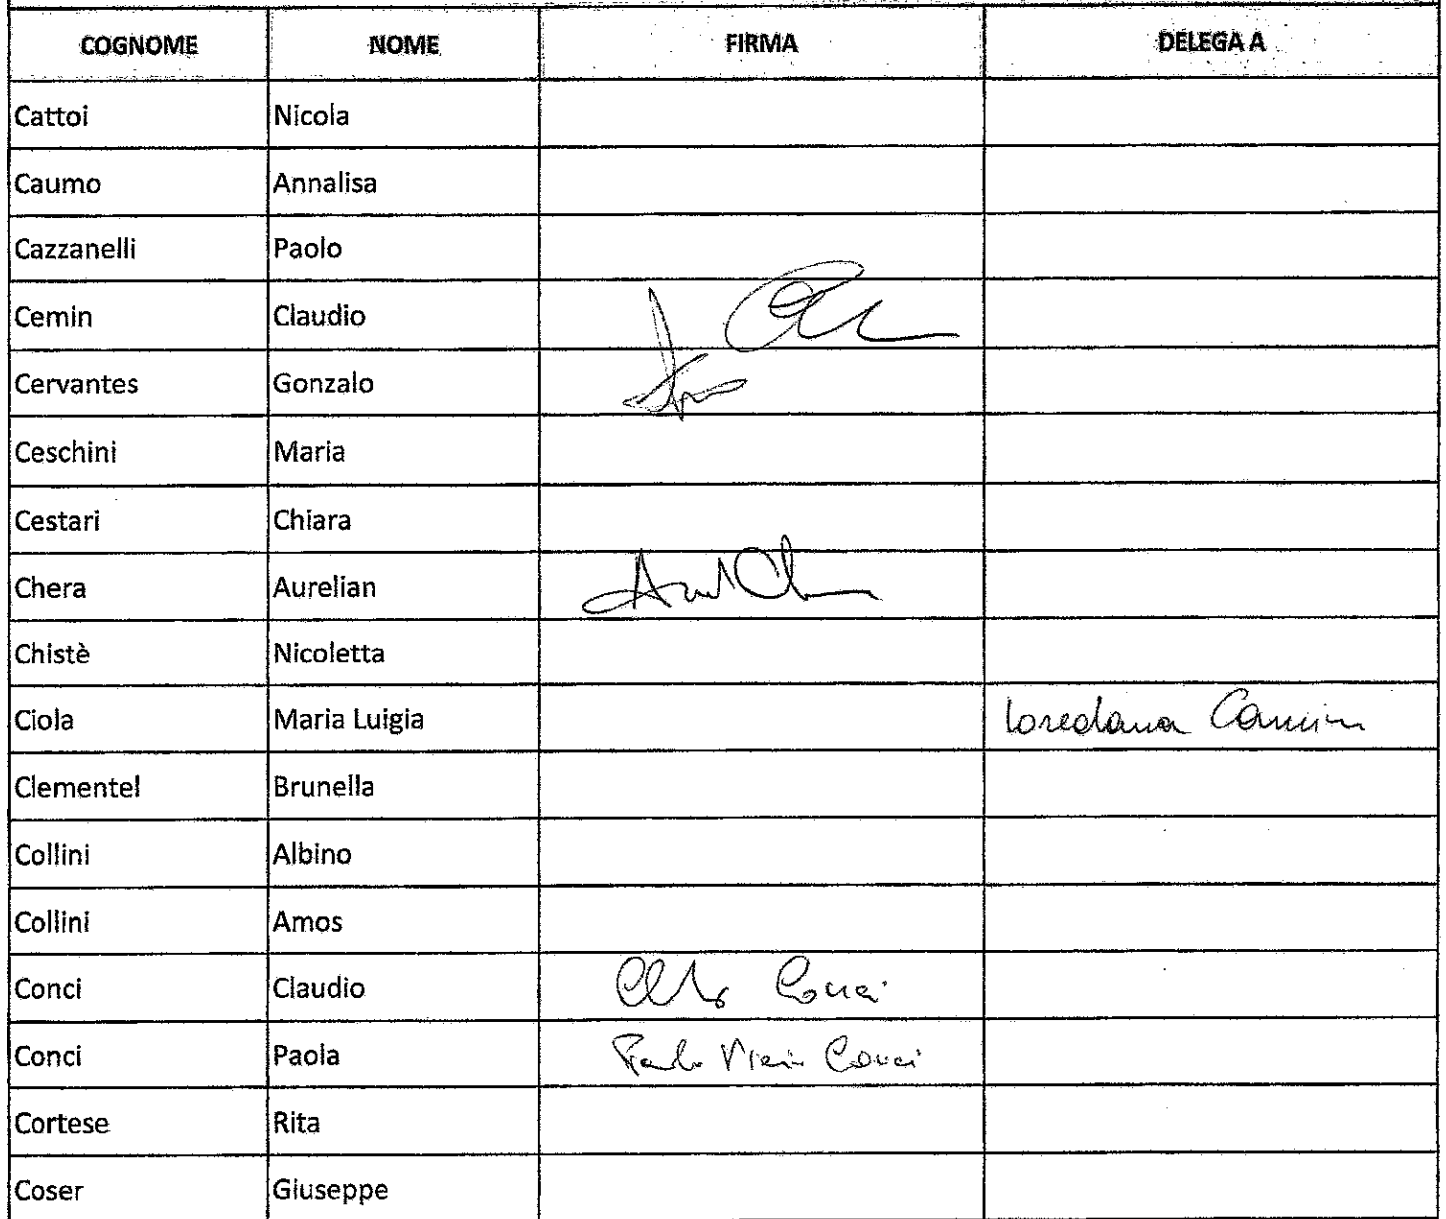 COGNOME NOME FIRMA DELEGA A
Cattoi Nicola
Caumo Annalisa
Cazzanelli Paolo
Cemin Claudio
Cervantes Gonzalo
Ceschini Maria
Cestari Chiara
Chera Aurelian
Chistè Nicoletta
Ciola Maria Luigia Loredana
Clementel Brunella
Collini Albino
Collini Amos
Conci Claudio Conci
Conci Paola Conci
Cortese Rita
Coser Giuseppe